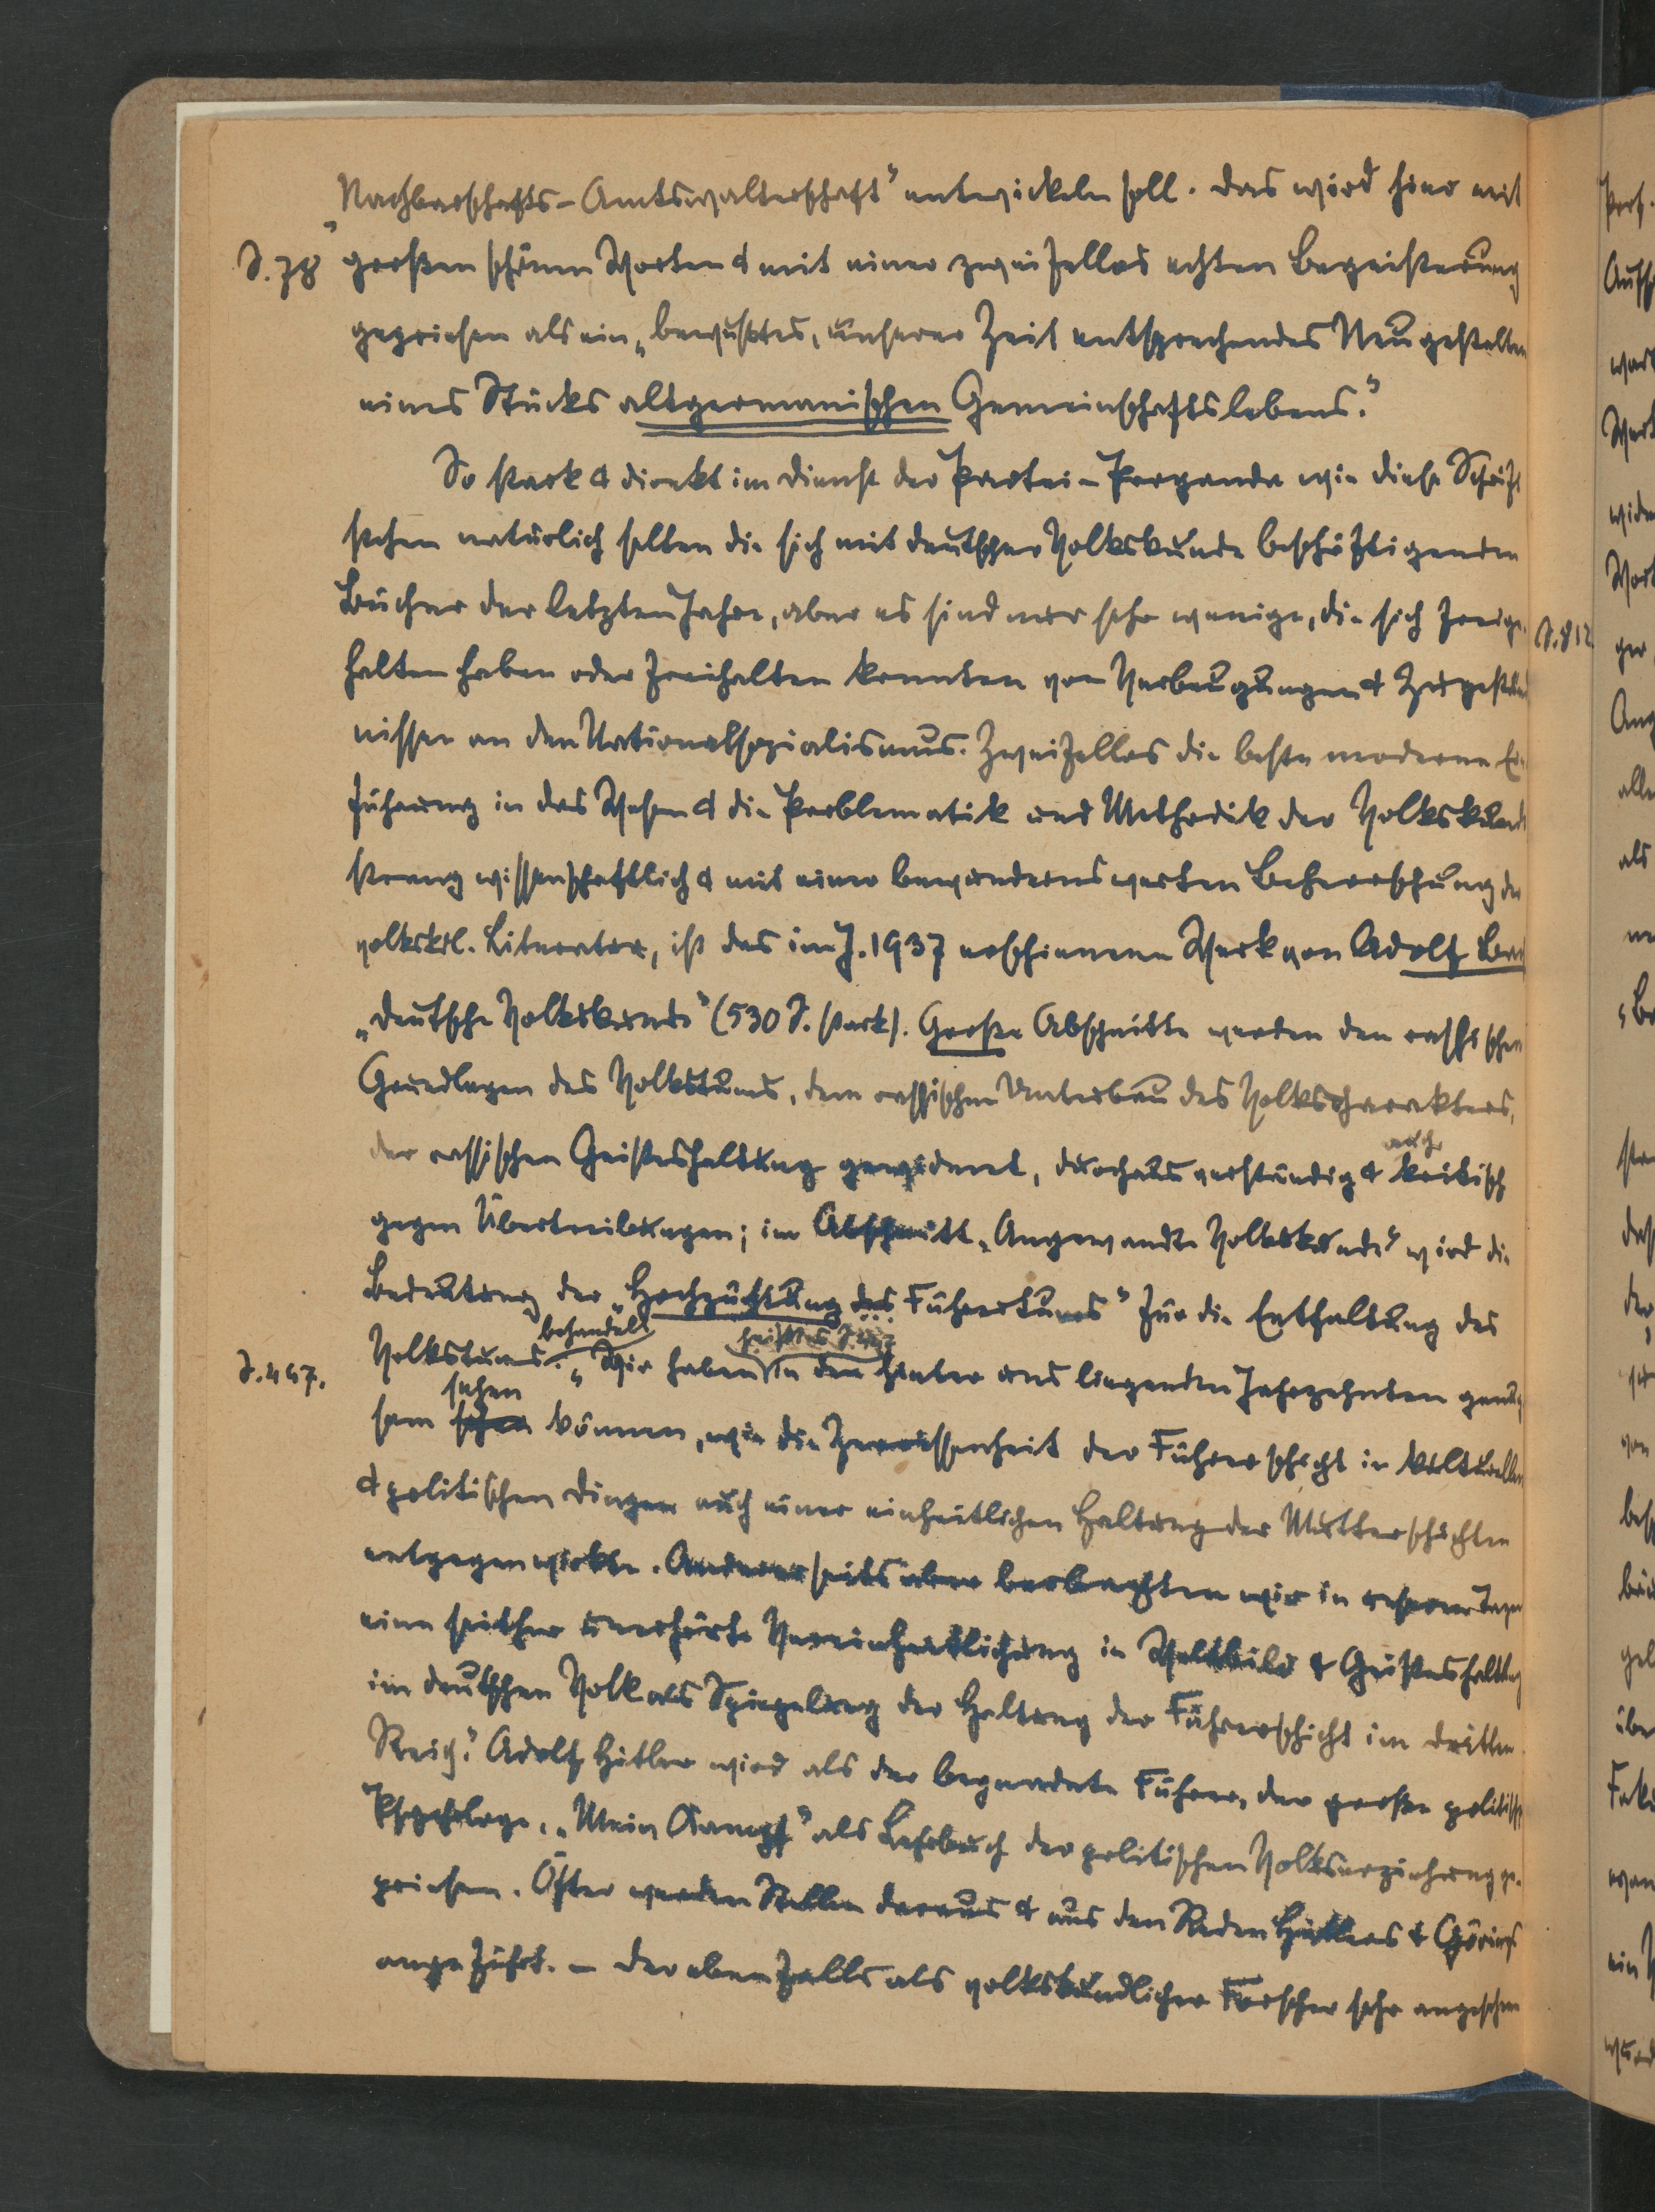 „Nachbarschafts-Amtswalterschaft" entwickeln soll. Das wird hier mit
S. 78 großen schönen Worten & mit einer zweifellos echten Begeisterung
gepriesen als ein „bewußtes, unserer Zeit entsprechendes Neugestalten
eines Stücks altgermanischen Gemeinschaftslebens."
So stark & direkt im Dienst der Partei-Propaganda wie diese Schrift
stehen natürlich selten die sich mit deutscher Volkskunde beschäftigenden
Bücher der letzten Jahre, aber es sind nur sehr wenige, die sich freige-
halten haben oder freihalten konnten von Verbeugungen & Zugeständ
nissen an den Nationalsozialismus. Zweifellos die beste moderne Ein
führung in das Wesen & die Problematik und Methodik der Volkskunde
streng wissenschaftlich & mit einer bewundernswerten Beherrschung der
volkskdl. Literatur, ist das im J. 1937 erschienene Werk von Adolf Bac
„Deutsche Volkskunde" (530 S. stark). Große Abschnitte werden den rassischen
Grundlagen des Volkstums, dem rassischen Unterbau des Volkscharakters,
der rassischen Geisteshaltung gewidmet, durchaus verständig & auch kritisch
gegen Übertreibungen; im Abschnitt „Angewandte Volkskunde" wird die
Bedeutung der „Hochzüchtung des Führertums" für die Entfaltung des
S. 447. Volkstums behandelt. „Wir haben in den hinter uns liegenden Jahrzehnten genug
sam sehen können, wie die Zerrissenheit der Führerschicht in kulturellen
& politischen Dingen auch einer einheitlichen Haltung der Mutterschichten
entgegenwirkte. Andererseits aber beobachten wir in unseren Tagen
eine seither unerhörte Vereinheitlichung in Weltbild & Geisteshaltung
im deutschen Volk als Spiegelung der Haltung der Führerschicht im dritten
Reich." Adolf Hitler wird als der begnadete Führer, der große politische
Psychologe, „Mein Kampf" als Lehrbuch der politischen Volkserziehung ge-
priesen. Öfter werden Stellen daraus & aus den Reden Hitlers & Görings
angeführt. – Der ebenfalls als volkskundlicher Forscher sehr angesehene
S. 812.